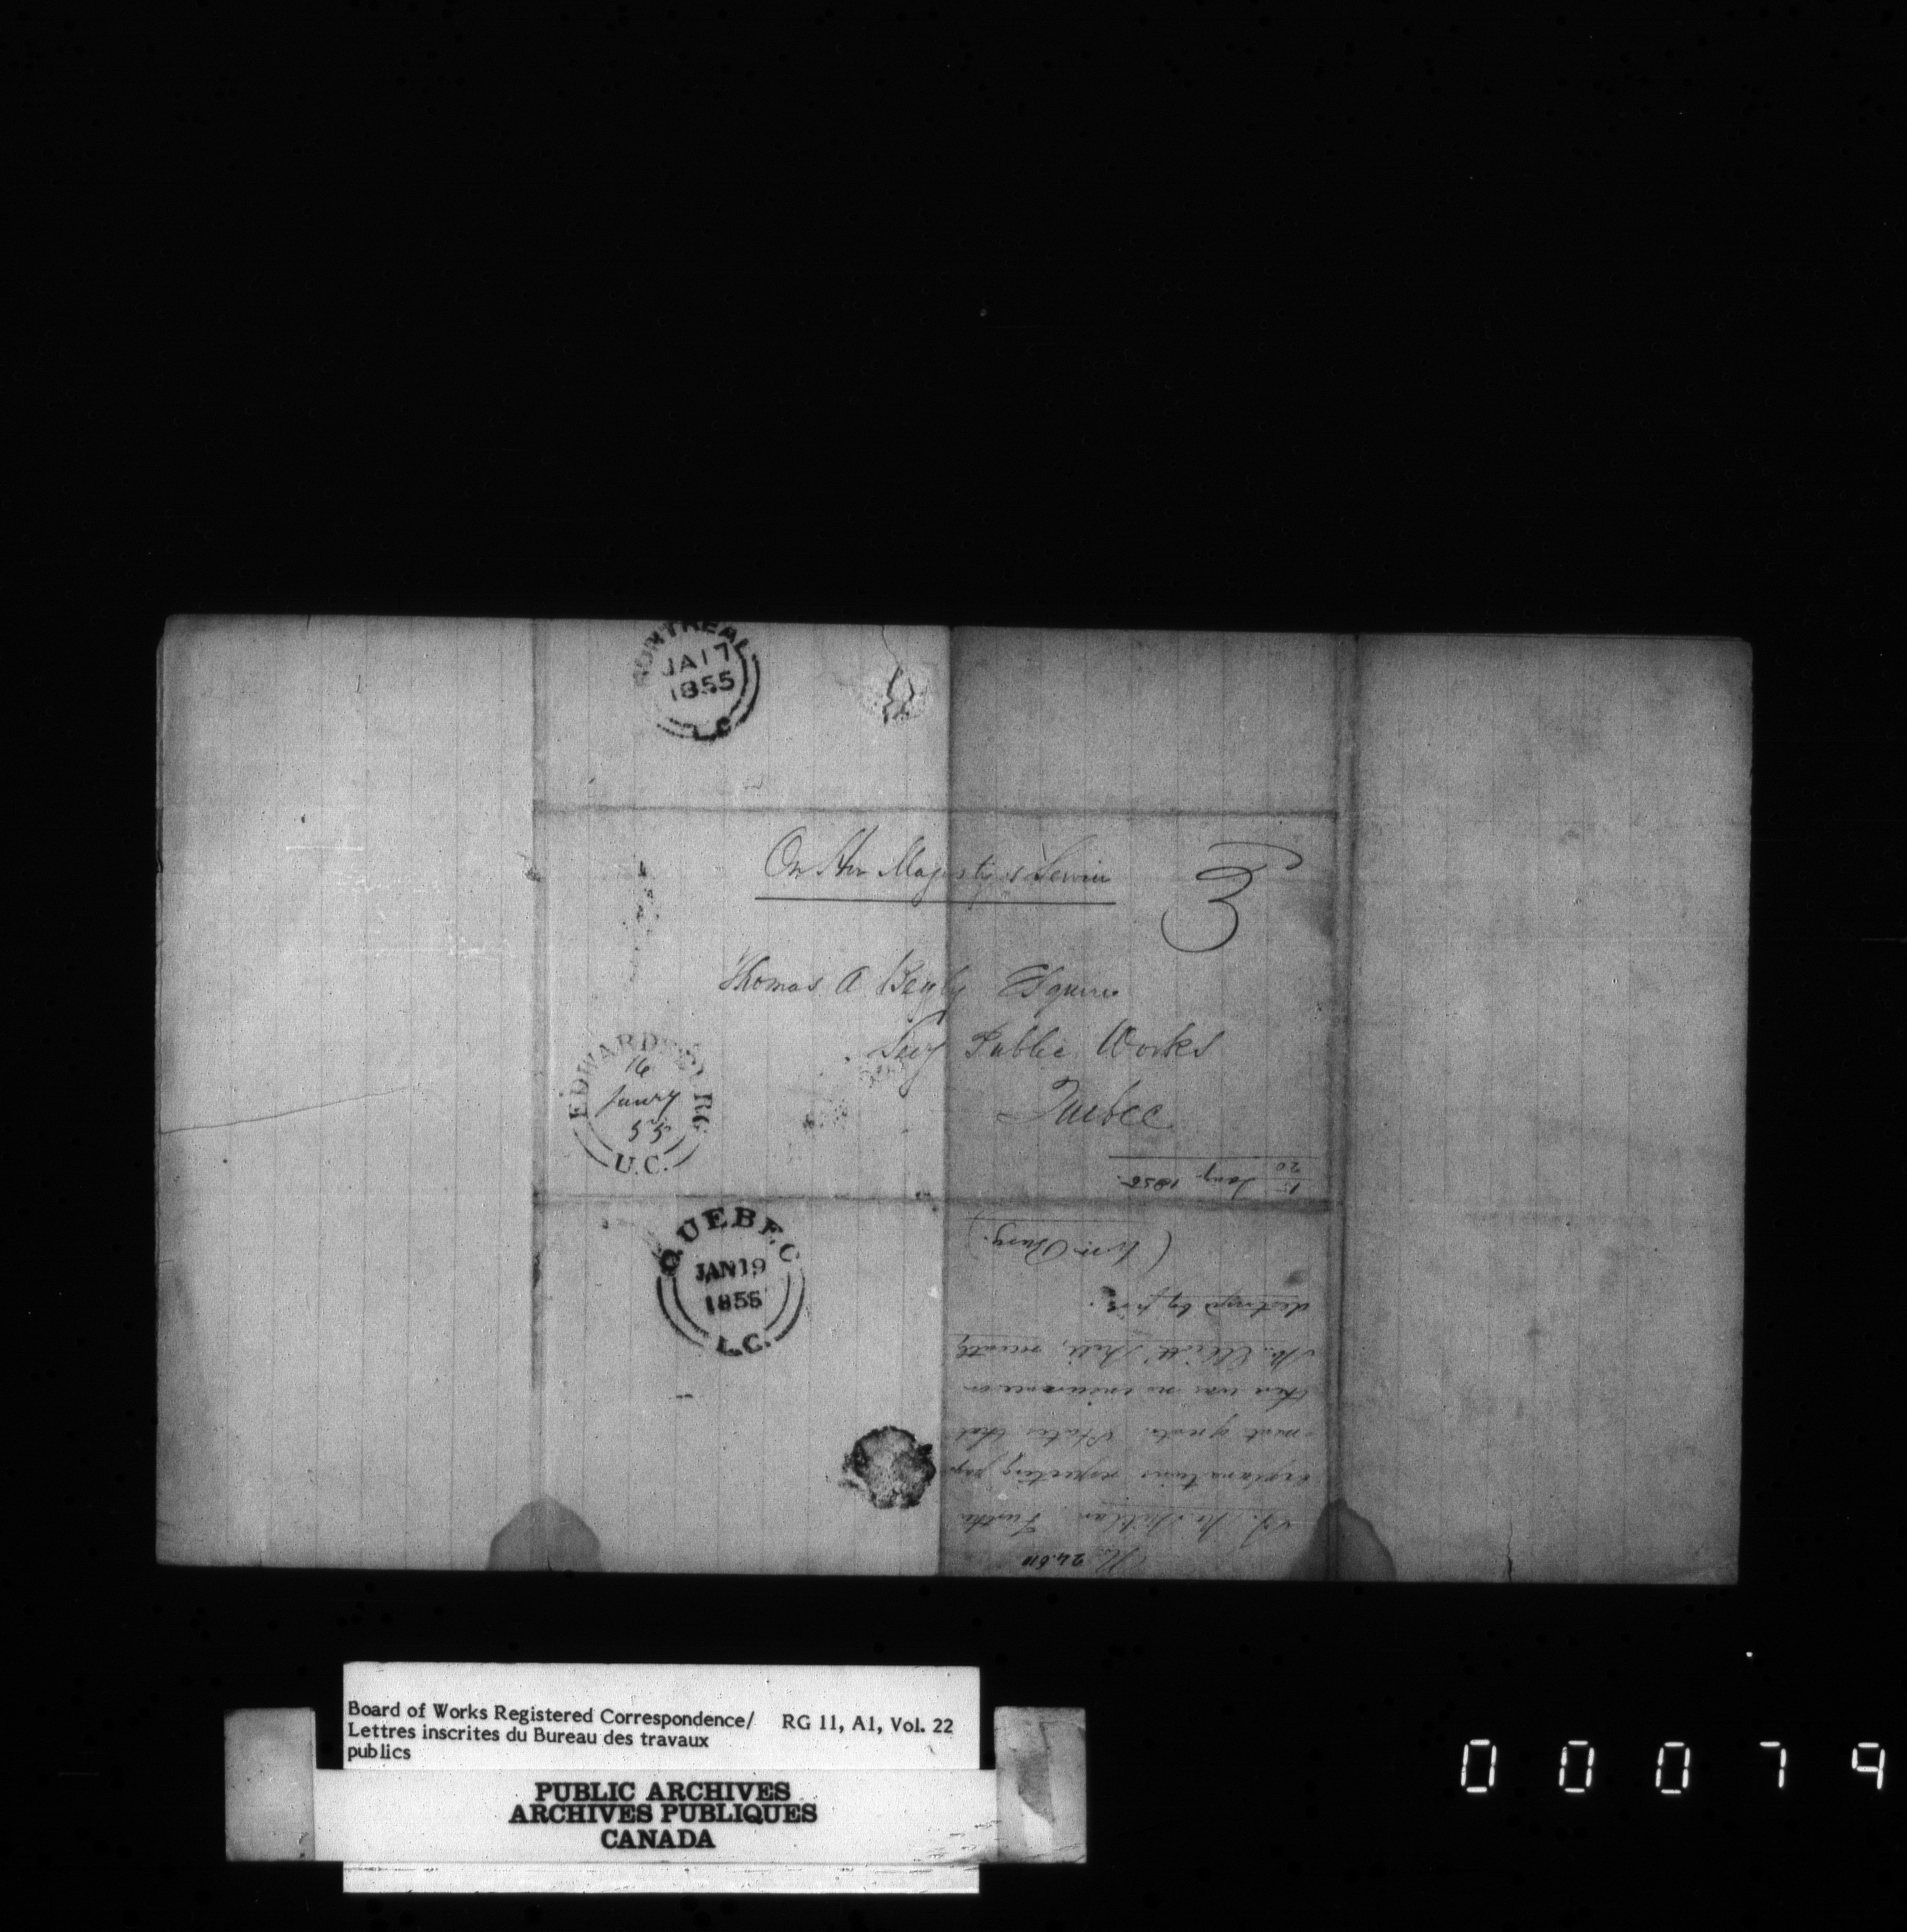 MONTREAL
JA 17
1855
L.C.
On Her Majesty's Service
3
Thomas A Begly Esquire
Secy Public Works
Quebec
EDWARDSBURG
16
Jany
55
U.C.
QUEBEC
JAN 19
1855
L.C.
No. 24.611
Further
explanations respecting pay
-ment of note. States that
there was no insurance on
Mr. Elliott's Mill, recently
destroyed by fire.
15 Jany 1855.
20
Board of Works Registered Correspondence/ RG 11, A1, Vol. 22
Lettres inscrites du Bureau des travaux
publics
PUBLIC ARCHIVES
ARCHIVES PUBLIQUES
CANADA
00079